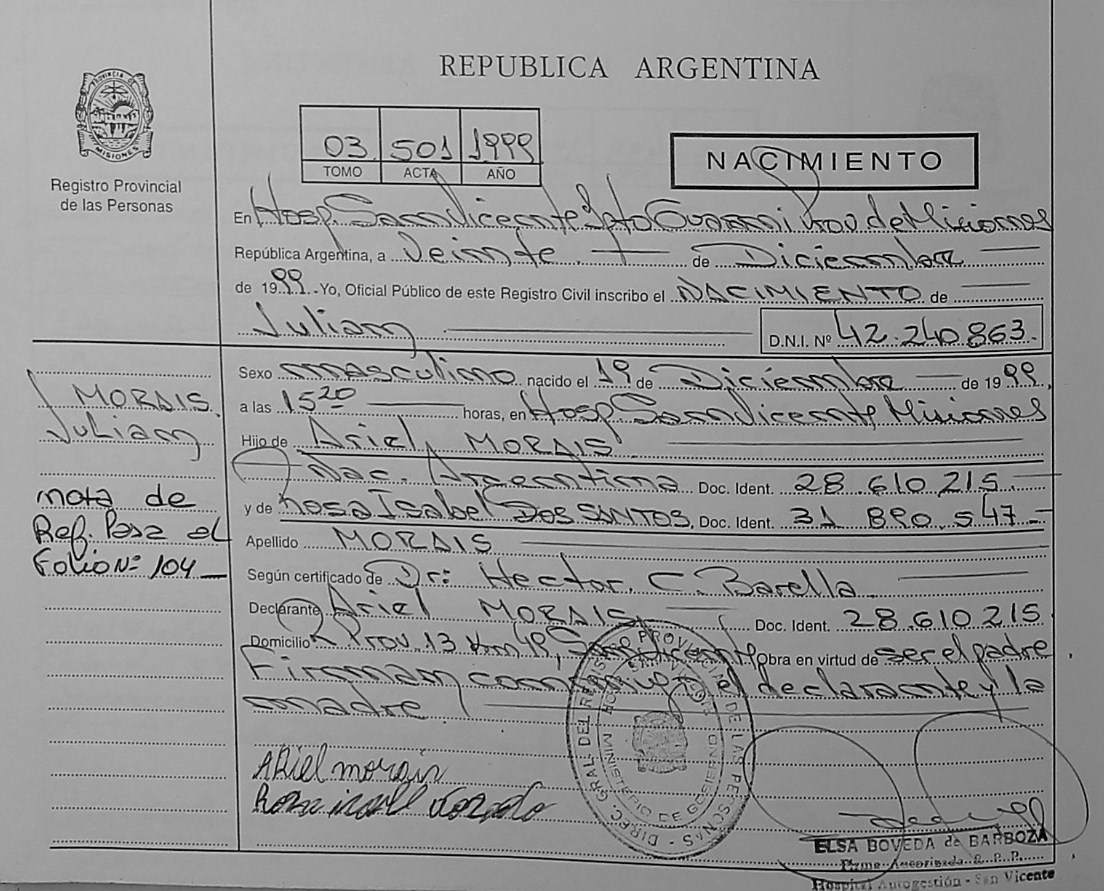 REPUBLICA ARGENTINA
PROVINCIA DE
MISIONES
Registro Provincial
de las Personas
03 501 1999
TOMO ACTA AÑO
NACIMIENTO
En Hosp. San Vicente Dpto Guarani Prov. de Misiones
República Argentina, a Veinte de Diciembre
de 1999 Yo, Oficial Público de este Registro Civil inscribo el NACIMIENTO de
Julian
D.N.I. Nº 42.240.863
Sexo masculino nacido el 19 de Diciembre de 1999,
a las 15 20 horas, en Hosp San Vicente Misiones
Hijo de Ariel MORAIS
Nac. Argentina Doc. Ident. 28.610.215
y de Rosa Isabel DOS SANTOS, Doc. Ident. 31 890.547
Apellido MORAIS
Según certificado de Dr: Hector. C. Barella
Declarante Ariel MORAIS Doc. Ident. 28.610.215
Domicilio Prov. 13 Km 48, San Vicente Obra en virtud de ser el padre
Firman conmigo el declarante y la
madre
MORAIS
Julian
nota de
Ref. Pasa al
Folio Nº 104
Ariel morais
DIREC. GRAL. DEL REGISTRO PROVINCIAL DE LAS PERSONAS
MINISTERIO DE GOBIERNO
ELSA BOVEDA de BARBOZA
Firma Autorizada R.P.P.
Hospital Autogestión - San Vicente